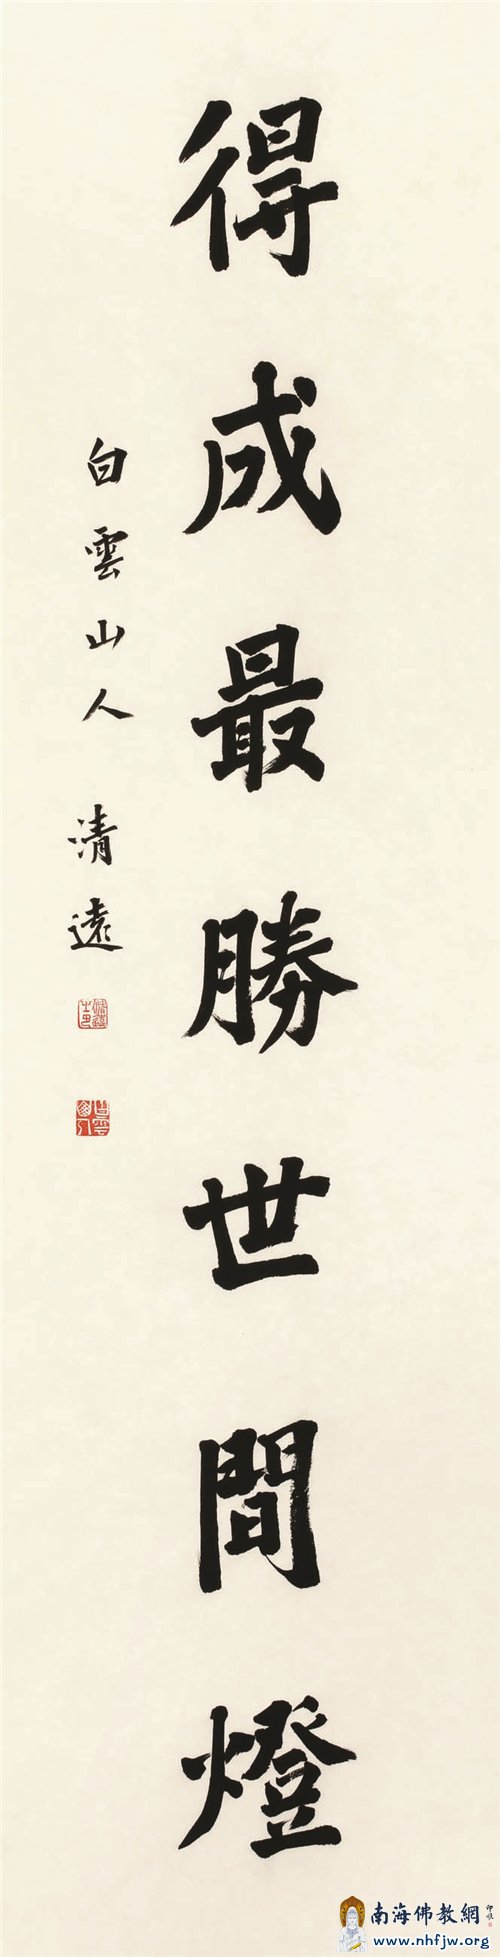 得成最勝世間燈
白雲山人 清遠
南海佛教網
www.nhfjw.org